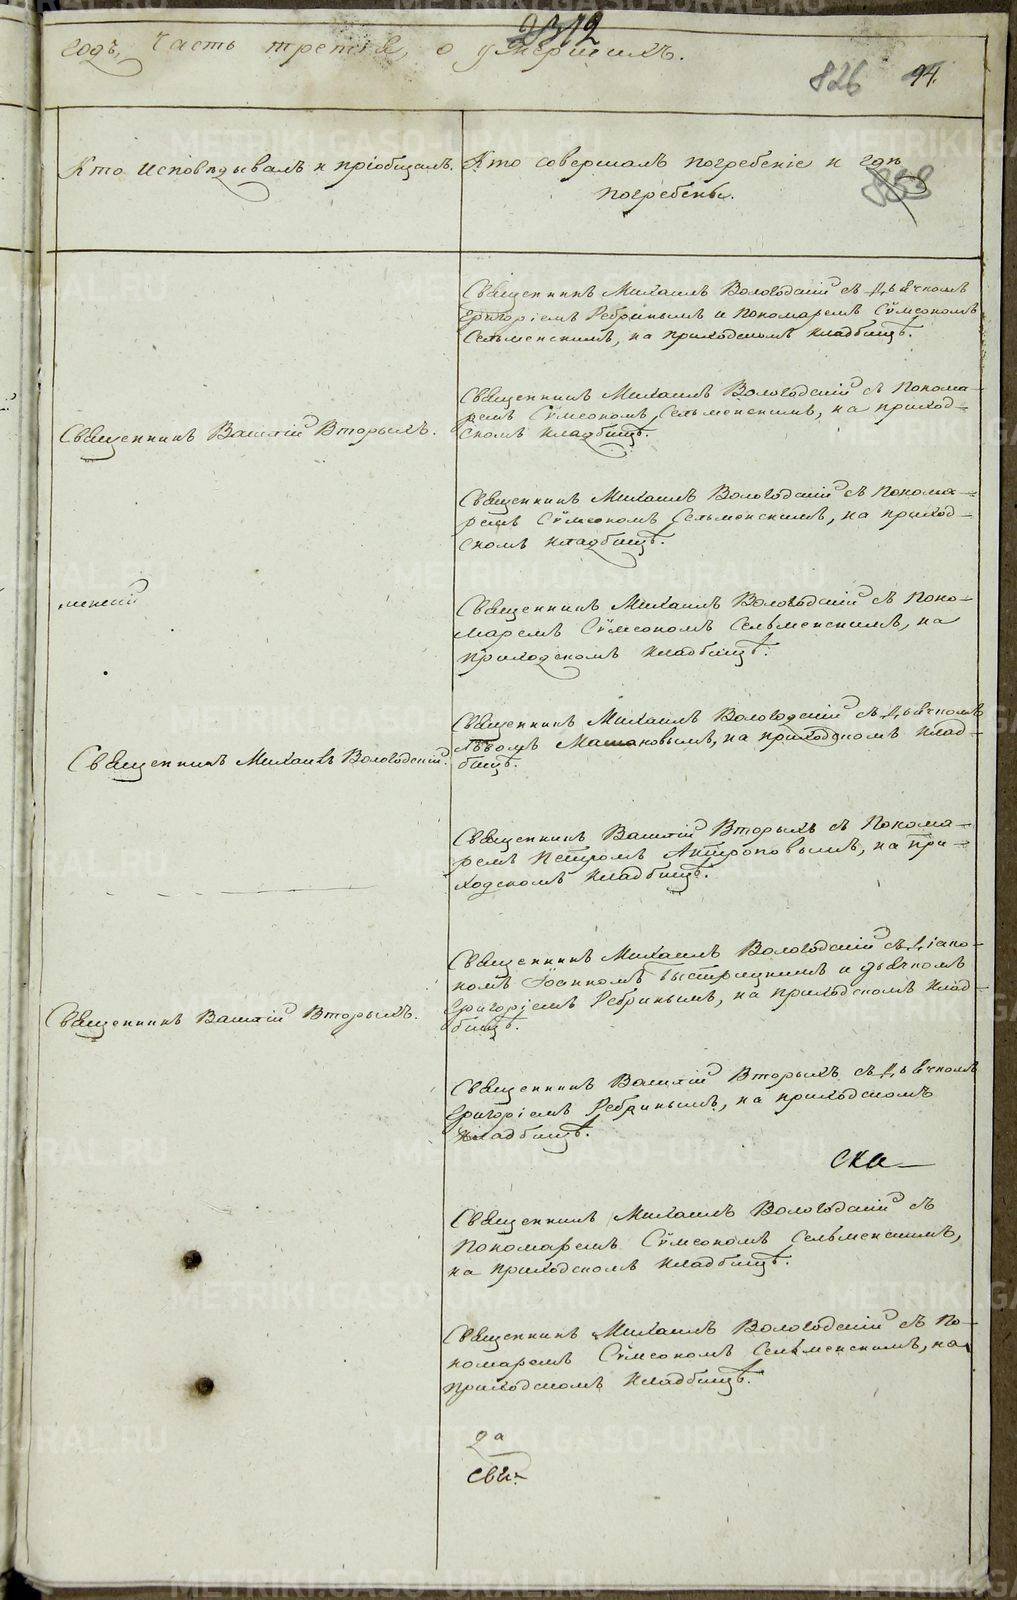 2312
годъ, Часть третія, о умершихъ.
826 94.
Кто Исповѣдывалъ и пріобщалъ.
Кто совершалъ погребеніе и гдѣ
погребены.
858
Священникъ Михаилъ Вологодскій съ Дьячкомъ
Григоріемъ Ребринымъ и Пономаремъ Сѵмеономъ
Сельменскимъ, на приходскомъ кладбищѣ.
Священникъ Василій Вторыхъ.
Священникъ Михаилъ Вологодскій съ Понома-
ремъ Сѵмеономъ Сельменскимъ, на приход-
скомъ кладбищѣ.
Священникъ Михаилъ Вологодскій съ Понома-
ремъ Сѵмеономъ Сельменскимъ, на приход-
скомъ кладбищѣ.
Священникъ Михаилъ Вологодскій съ Поно-
маремъ Сѵмеономъ Сельменскимъ, на
приходскомъ кладбищѣ.
Священникъ Михаилъ Вологодскій.
Священникъ Михаилъ Вологодскій съ Дьячкомъ
Львомъ на приходскомъ клад-
бищѣ.
Священникъ Василій Вторыхъ съ Понома-
ремъ Петромъ Антроповымъ, на при-
ходскомъ кладбищѣ.
Священникъ Василій Вторыхъ.
Священникъ Михаилъ Вологодскій съ Діако-
номъ Іоанномъ Быстрицкимъ и дьячкомъ
Григоріемъ Ребринымъ, на приходскомъ клад-
бищѣ.
Священникъ Василій Вторыхъ съ Дьячкомъ
Григоріемъ Ребринымъ, на приходскомъ
кладбищѣ.
ска
Священникъ Михаилъ Вологодскій съ
Пономаремъ Сѵмеономъ Сельменскимъ,
на приходскомъ кладбищѣ.
Священникъ Михаилъ Вологодскій съ По-
номаремъ Сѵмеономъ Сельменскимъ, на
приходскомъ кладбищѣ.